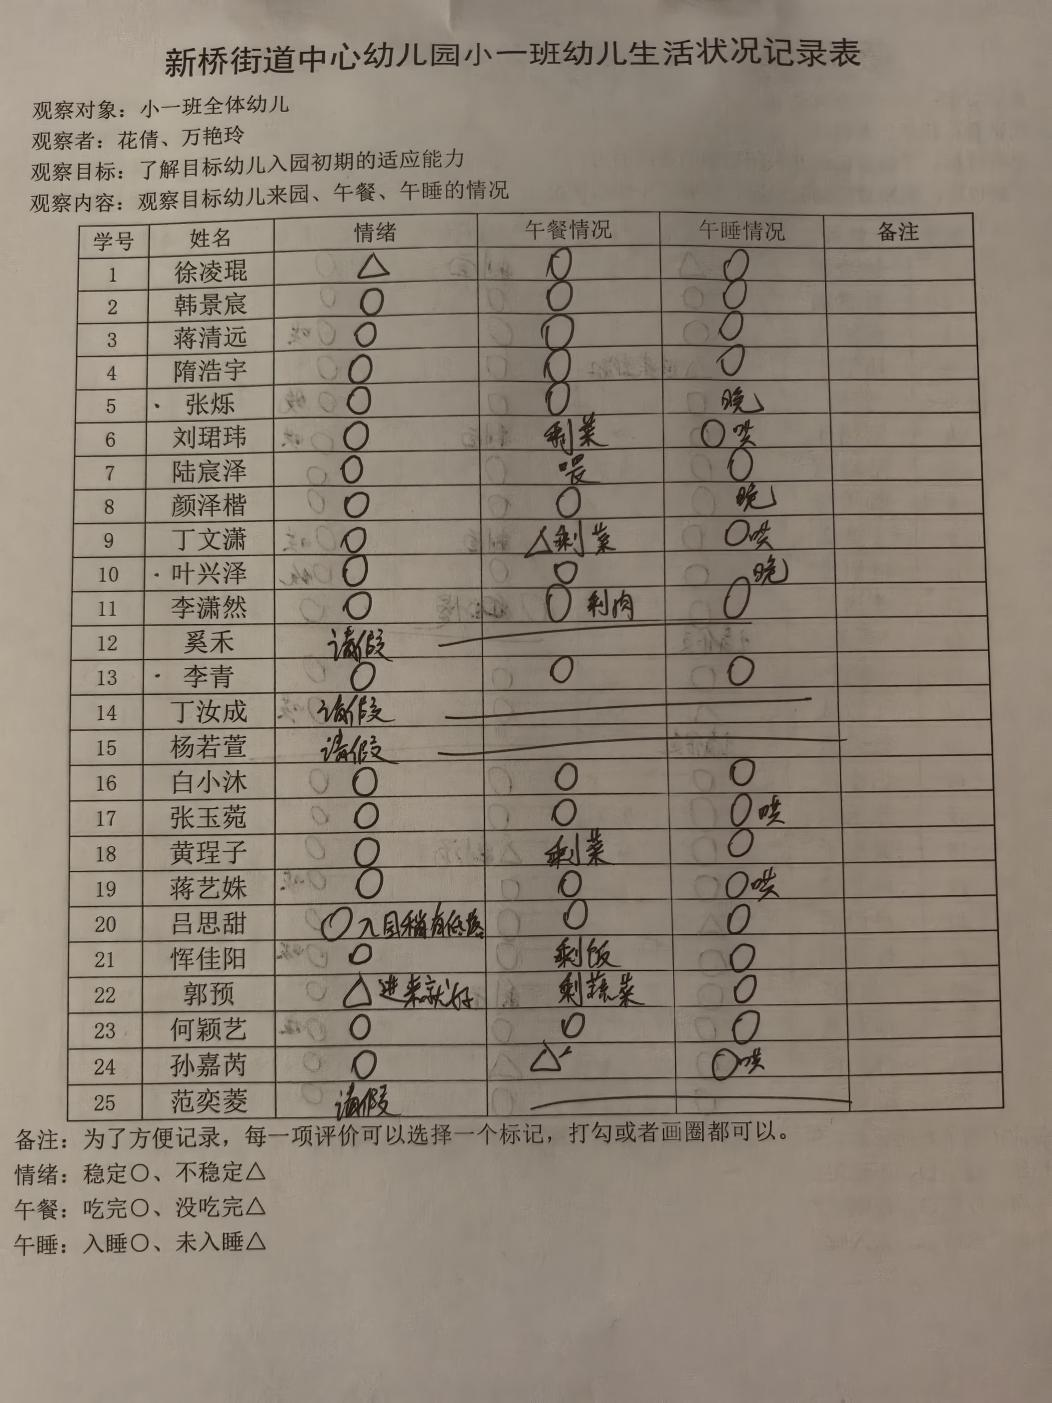 新桥街道中心幼儿园小一班幼儿生活状况记录表
观察对象：小一班全体幼儿
观察者：花倩、万艳玲
观察目标：了解目标幼儿入园初期的适应能力
观察内容：观察目标幼儿来园、午餐、午睡的情况
学号 姓名 情绪 午餐情况 午睡情况 备注
1 徐凌琨 △ ○ ○
2 韩景宸 ○ ○ ○
3 蒋清远 ○ ○ ○
4 隋浩宇 ○ ○ ○
5 · 张烁 ○ ○ 晚
6 刘珺玮 ○ 剩菜 ○哄
7 陆宸泽 ○ 喂 ○
8 颜泽楷 ○ ○ 晚
9 丁文潇 ○ △剩菜 ○哄
10 · 叶兴泽 ○ ○ 晚
11 李潇然 ○ ○ 剩肉 ○
12 奚禾 请假
13 · 李青 ○ ○ ○
14 丁汝成 请假
15 杨若萱 请假
16 白小沐 ○ ○ ○
17 张玉菀 ○ ○ ○哄
18 黄珵子 ○ 剩菜 ○
19 蒋艺姝 ○ ○ ○哄
20 吕思甜 ○入园稍有低 ○ ○
21 恽佳阳 ○ 剩饭 ○
22 郭预 △进来就好 剩蔬菜 ○
23 何颖艺 ○ ○ ○
24 孙嘉芮 ○ △ ○哄
25 范奕菱 请假
备注：为了方便记录，每一项评价可以选择一个标记，打勾或者画圈都可以。
情绪：稳定○、不稳定△
午餐：吃完○、没吃完△
午睡：入睡○、未入睡△